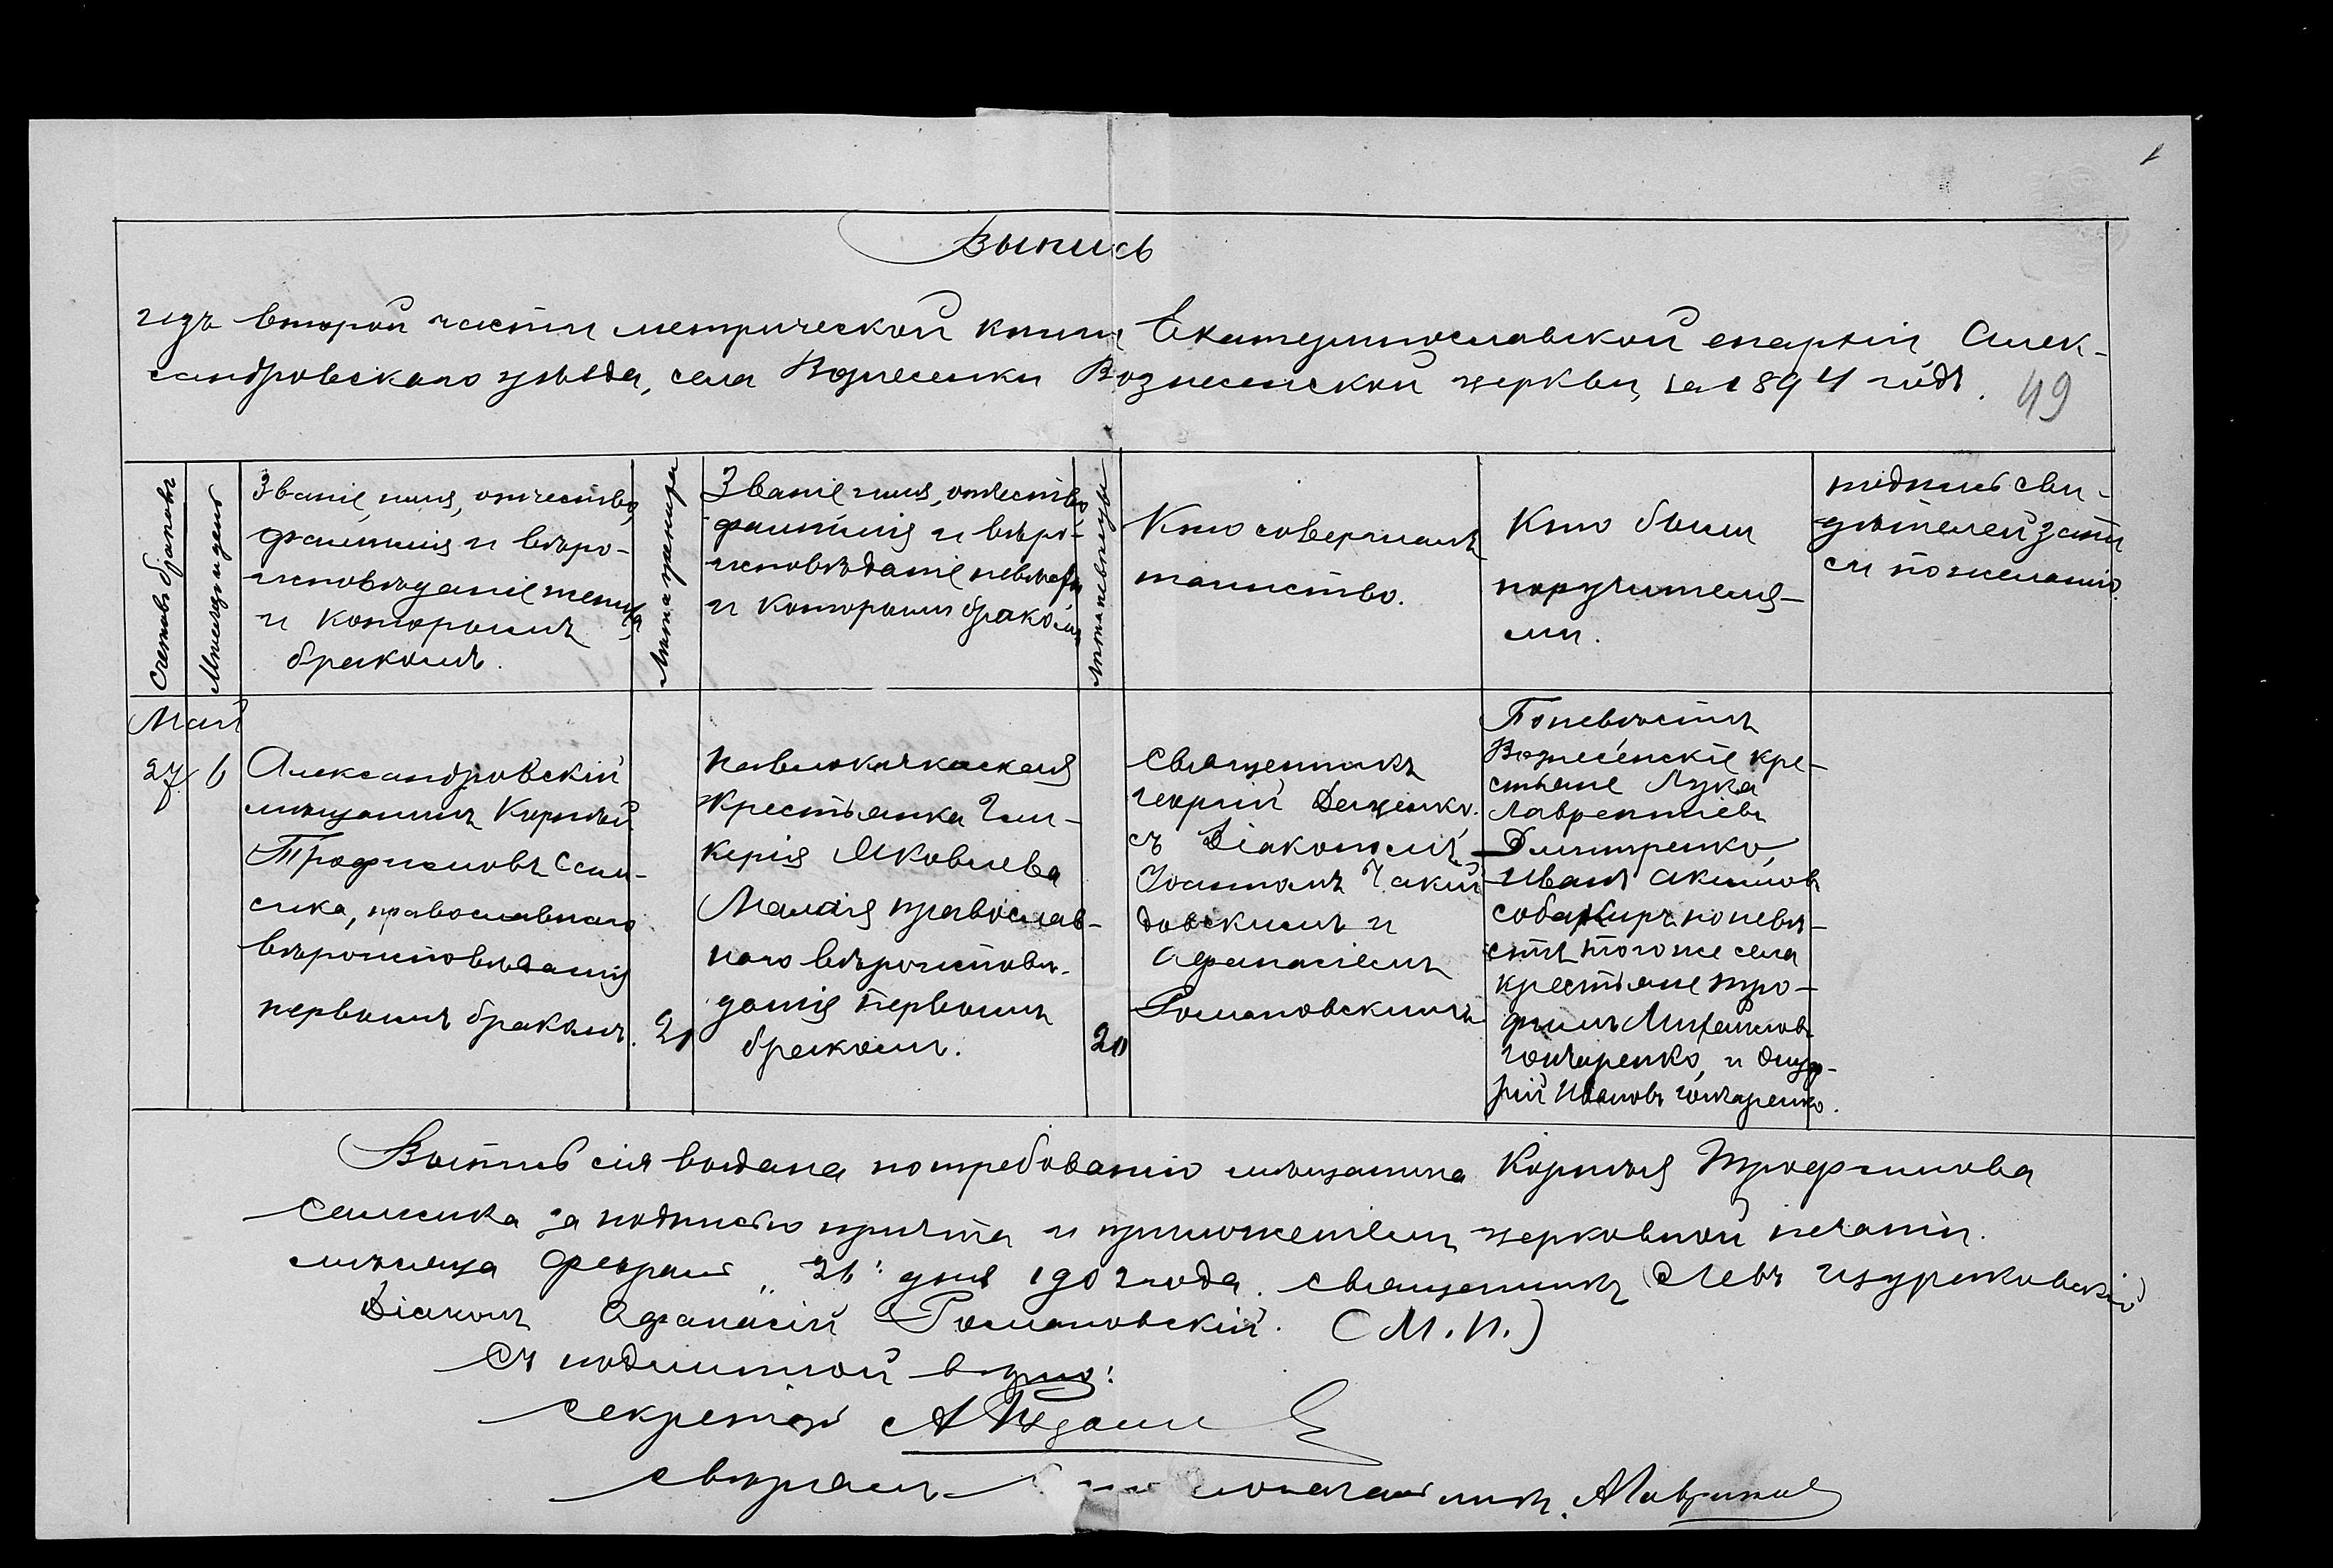 1
Выпись
изъ второй части метрической книги Екатеринославской епархіи, Алек-
сандровскаго уѣзда, села Вознесенки Вознесенской церкви, за 1894 годъ.
49
Счетъ браковъ
Мѣсяцъ и день
Званіе, имя, отчество,
фамилія и вѣро-
исповѣданіе жениха
и которымъ
бракомъ.
Лѣта жениха
Званіе, имя, отчество
фамилія и вѣро-
исповѣданіе невѣсты
и которымъ бракомъ
Лѣта невѣсты
Кто совершалъ
таинство.
Кто были
поручителя-
ми.
подпись сви-
дѣтелей запи
си по желанію.
Май
27 6
Александровскій
мѣщанинъ Корнѣй
Трофимовъ
православнаго
вѣроисповѣданія
первымъ бракомъ.
21
Павлокичкаская
крестьянка Гли-
керія Яковлева
Малая православ-
наго вѣроисповѣ-
данія первымъ
бракомъ.
20
Священникъ
Георгій Даценко.
съ Діакономъ
Іоанномъ
довскимъ и
Афанасіемъ
Романовскимъ
По невѣстѣ
Вознесенскіе кре-
стьяне Лука
Лаврентіевъ
Дмитренко,
Иванъ Акимовъ
по невѣ-
стѣ того же села
крестьяне Тро-
фимъ Михайловъ
Гончаренко, и Онуф-
рій Ивановъ Гончаренко.
Выпись сія выдана по требованію мѣщанина Корнѣя Трофимова
за подписью причта и приложеніемъ церковной печати.
мѣсяца Февраля "26" дня 1902 года. Священникъ Левъ
Діаконъ Афанасій Романовскій. (М.П.)
Съ подлинной вѣрно:
Секретарь А
Свѣрялъ